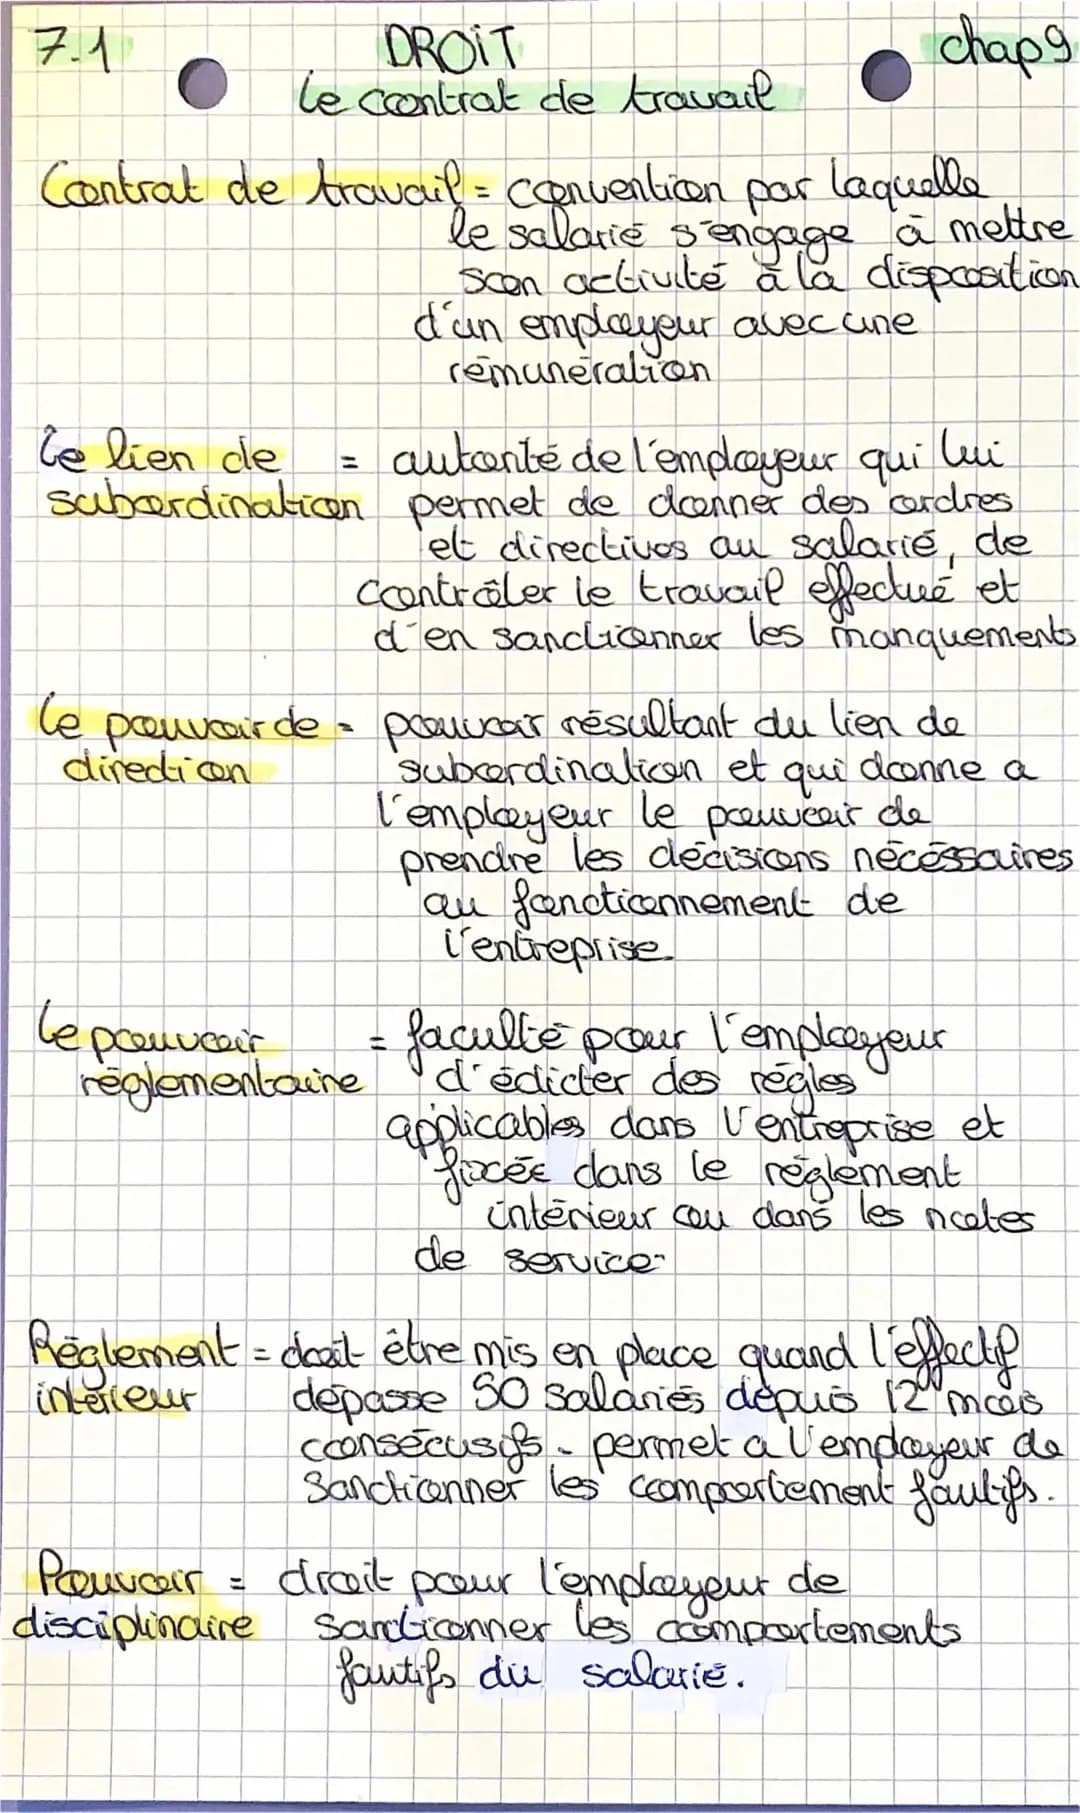 7.1 DROIT chap 9
Le contrat de travail
Contrat de travail = convention par laquelle
le salarié s'engage à mettre
son activité à la disposition
d'un employeur avec une
rémunération
Le lien de = autorité de l'employeur qui lui
subordination permet de donner des ordres
et directives au salarié, de
contrôler le travail effectué et
d'en sanctionner les manquements
Le pouvoir de = pouvoir résultant du lien de
direction subordination et qui donne a
l'employeur le pouvoir de
prendre les décisions nécéssaires
au fonctionnement de
l'entreprise.
Le pouvoir = faculté pour l'employeur
réglementaire d'édicter des régles
applicables dans l'entreprise et
fixcée dans le réglement
intérieur ou dans les notes
de service.
Réglement = doit être mis en place quand l'effectif
intérieur dépasse 50 salariés depuis 12 mois
consécusifs. permet a l'employeur de
Sanctionner les comportement fautifs.
Pouvoir = droit pour l'employeur de
disciplinaire sanctionner les comportements
fautifs du salarié.